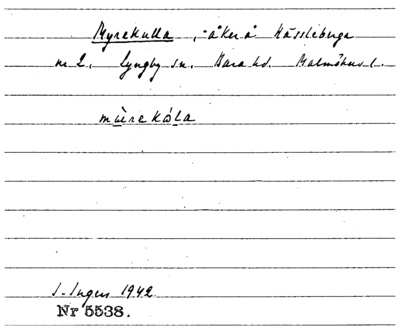 Myrekulla, åker å Hässleberga
nr 2. Lyngby sn. Bara hd. Malmöhus l.
mùrekóla
I. Ingers 1942
Nr 5538.